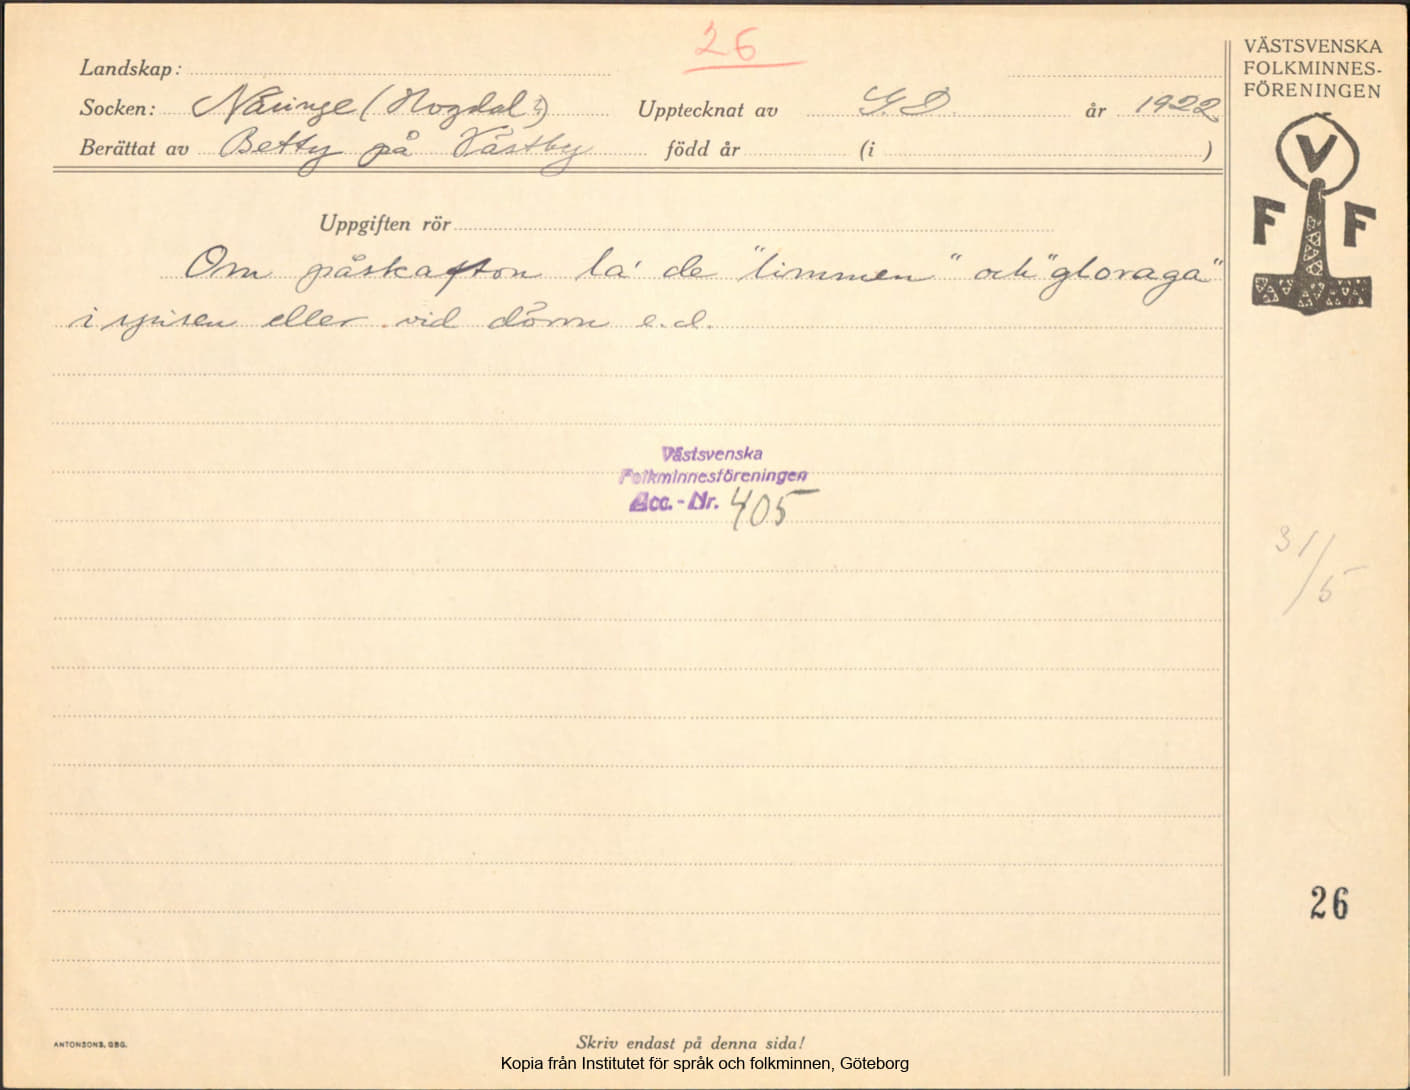 26
VÄSTSVENSKA
FOLKMINNES-
FÖRENINGEN
Landskap:
Socken: Näsinge (Hogdal?) Upptecknat av G. D. år 1922
Berättat av Betty på Västby född år (i )
V
F F
Uppgiften rör
Om påskafton la' de "limmen" och "gloraga"
i spisen eller vid dörrn e.d.
Västsvenska
Folkminnesföreningen
Acc.-Nr. 405
31/5
26
ANTONSONS, GBG.
Skriv endast på denna sida!
Kopia från Institutet för språk och folkminnen, Göteborg